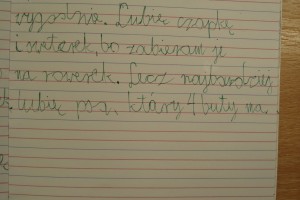 wygodnie. Lubię czapkę
i sweterek, bo zabieram je
na rowerek. Lecz najbardziej
lubię psa, który 4 buty ma.